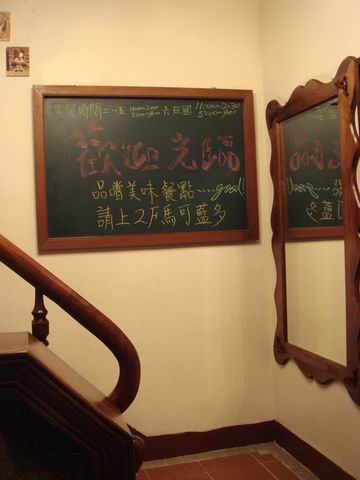 時間 二~五 11:00~2:00 5:00~9:00 六.日.國 11:00~2:30 5:00~9:00
歡迎光臨
品嚐美味餐點....good!
請上2F馬可藍多